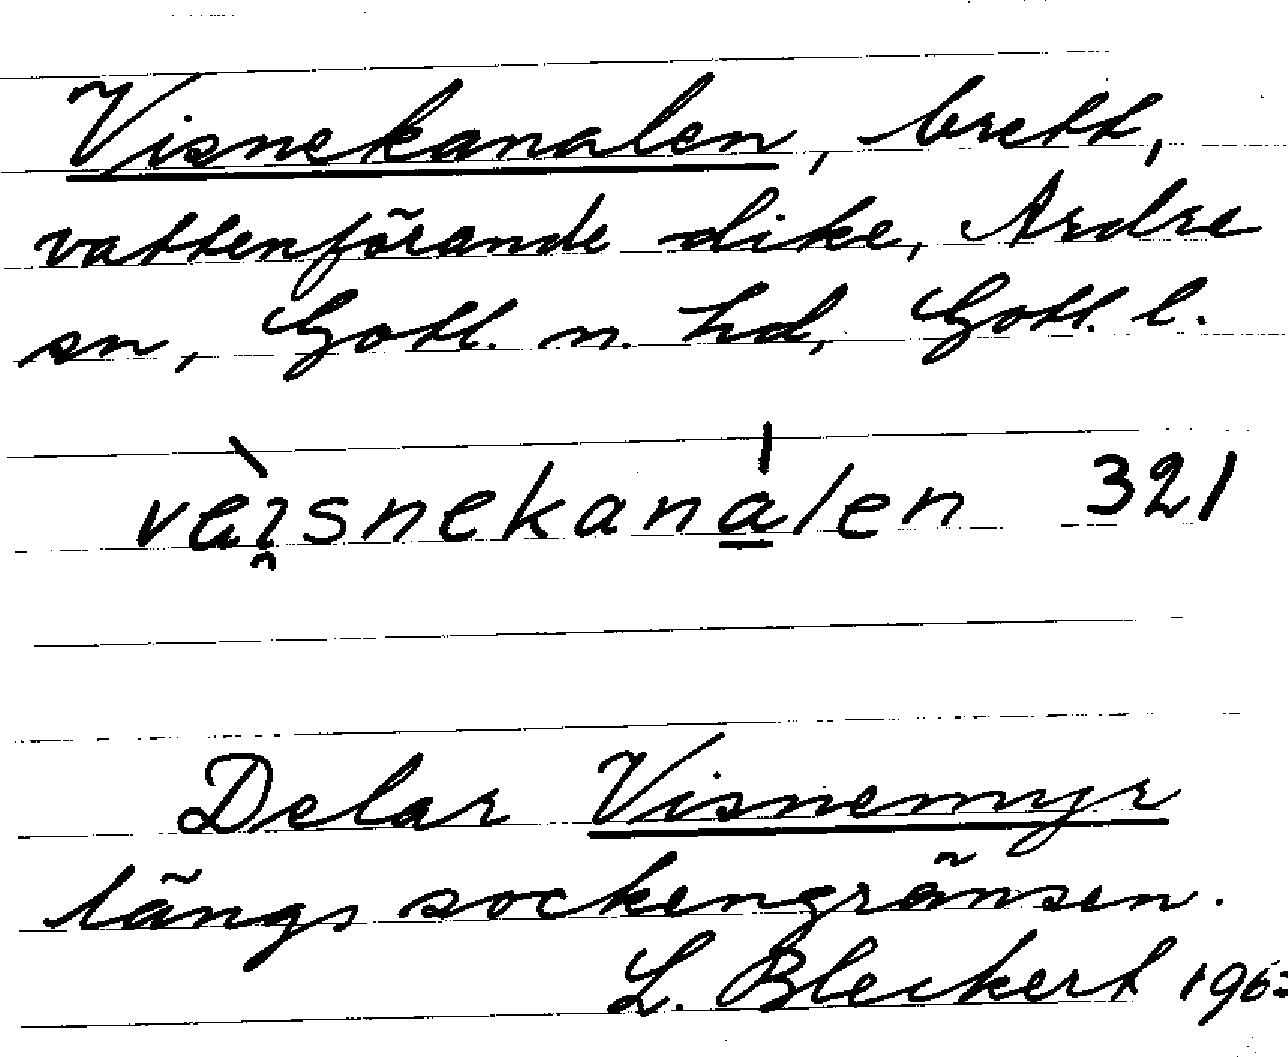 Visnekanalen, brett,
vattenförande dike, Ardre
sn, Gotl. n. hd, Gotl. l.
321
Delar Visnemyr
längs sockengränsen.
L. Bleckert